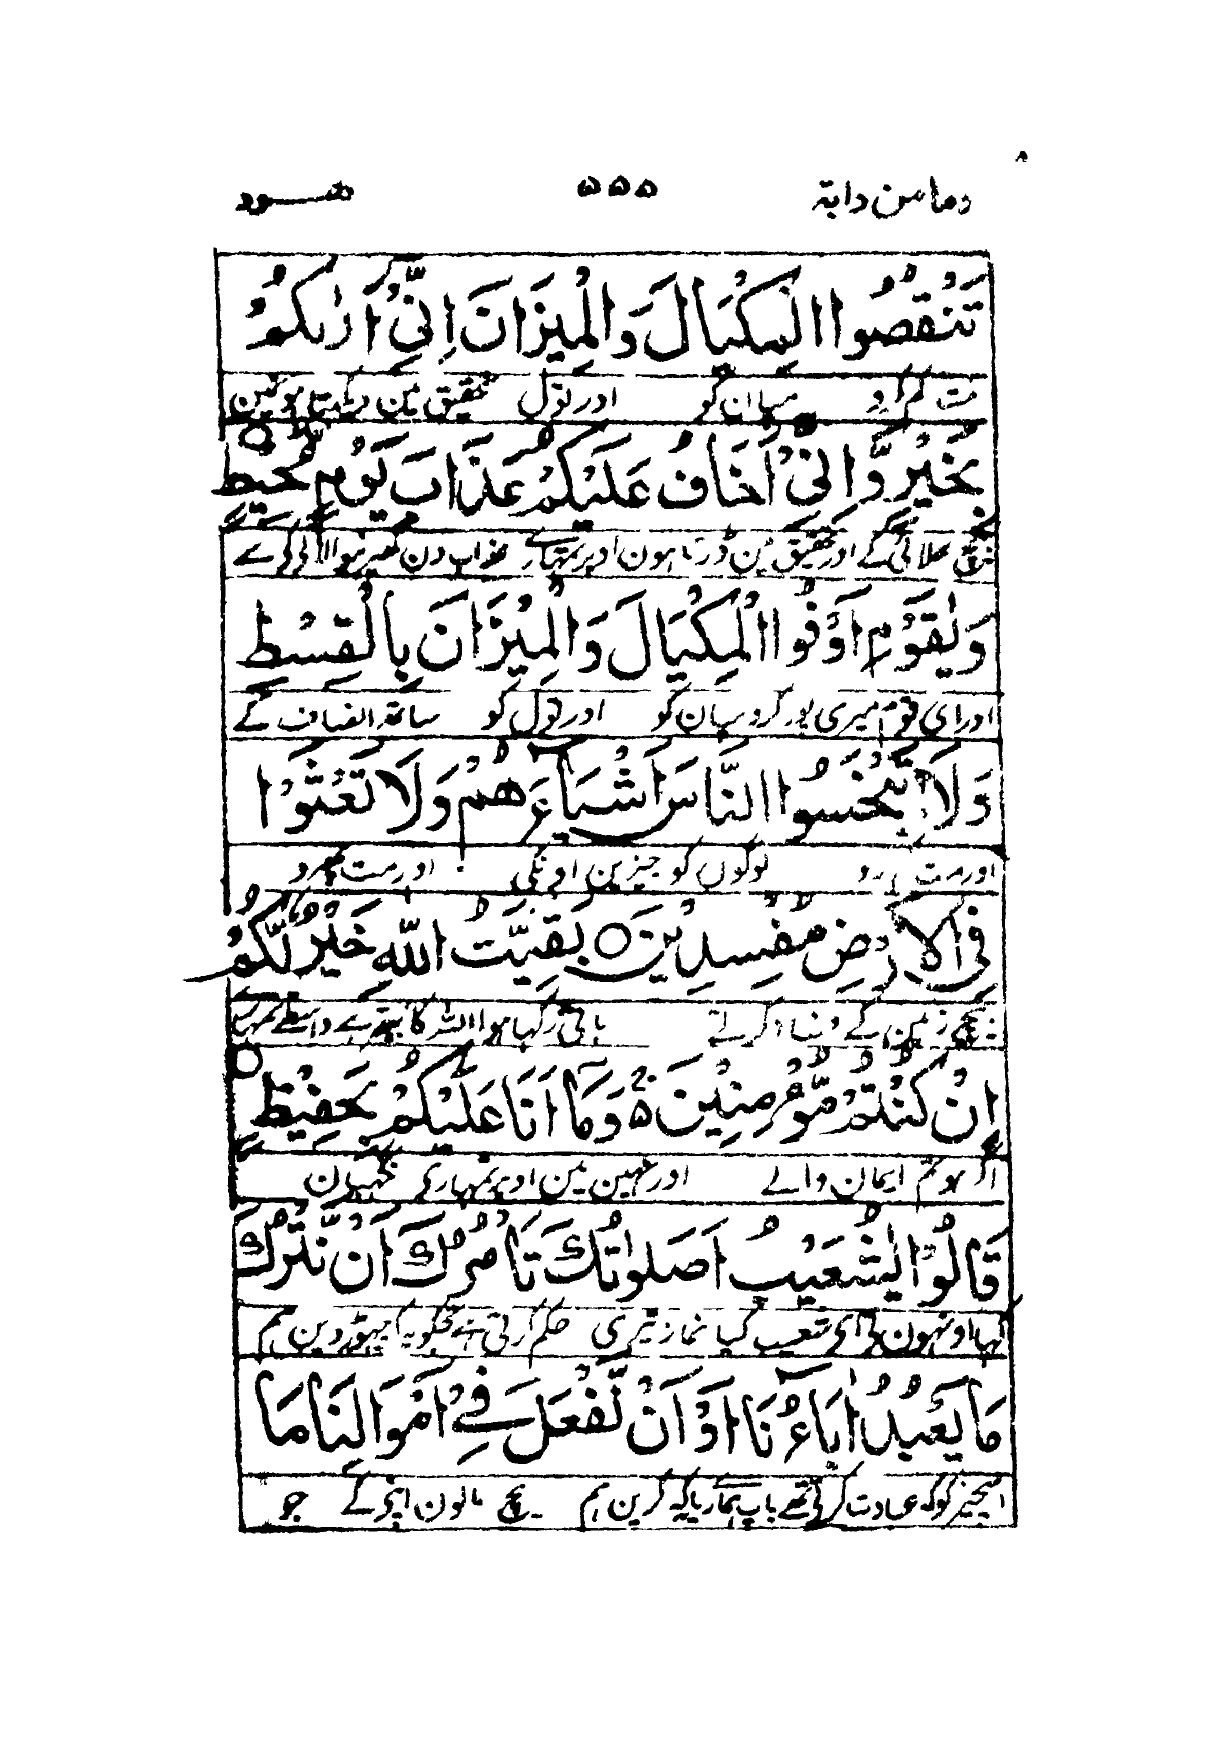 ومامن دابة ۵۵۵ هود
تَنْقُصُوا الْمِكْيَالَ وَالْمِيْزَانَ اِنِّيْٓ اَرٰىكُمْ
مت کم کرو میان کو اور تول تحقیق مین دیکھتا ہون تمین
بِخَيْرٍ وَّاِنِّيْٓ اَخَافُ عَلَيْكُمْ عَذَابَ يَوْمٍ مُّحِيْطٍ ○
بیچ بھلائی کے اور تحقیق مین ڈرتا ہون اوپر تمہارے عذاب دن گھیرنیوالی کے سے
وَيٰقَوْمِ اَوْفُوا الْمِكْيَالَ وَالْمِيْزَانَ بِالْقِسْطِ
اور ای قوم میری پور کرو میان کو اور تول کو ساتھ انصاف کے
وَلَا تَبْخَسُوا النَّاسَ اَشْيَآءَهُمْ وَلَا تَعْثَوْا
اور مت دو لوگون کو چیزین اونکی اور مت پھرو
فِى الْاَرْضِ مُفْسِدِيْنَ ○ بَقِيَّتُ اللّٰهِ خَيْرٌ لَّكُمْ
بیچ زمین کے فساد کرتے باقی رکھا ہوا اللہ کا بہتر ہے واسطے تمہارے
اِنْ كُنْتُمْ مُّؤْمِنِيْنَ ۵ وَمَآ اَنَا عَلَيْكُمْ بِحَفِيْظٍ ○
اگر ہو تم ایمان والے اور نہین مین اوپر تمہاری نگہبان
قَالُوْا يٰشُعَيْبُ اَصَلٰوتُكَ تَاْمُرُكَ اَنْ نَّتْرُكَ
کہا اونہون نے ای شعیب کیا نماز تیری حکم کرتی ہے تجکو یہ کہ چھوڑ دین ہم
مَا يَعْبُدُ اٰبَآؤُنَآ اَوْ اَنْ نَّفْعَلَ فِيْٓ اَمْوَالِنَا مَا
اسچیز کو کہ عبادت کرتے تھے باپ ہمار یا کہ کرین ہم بیچ مالون اپنے کے جو